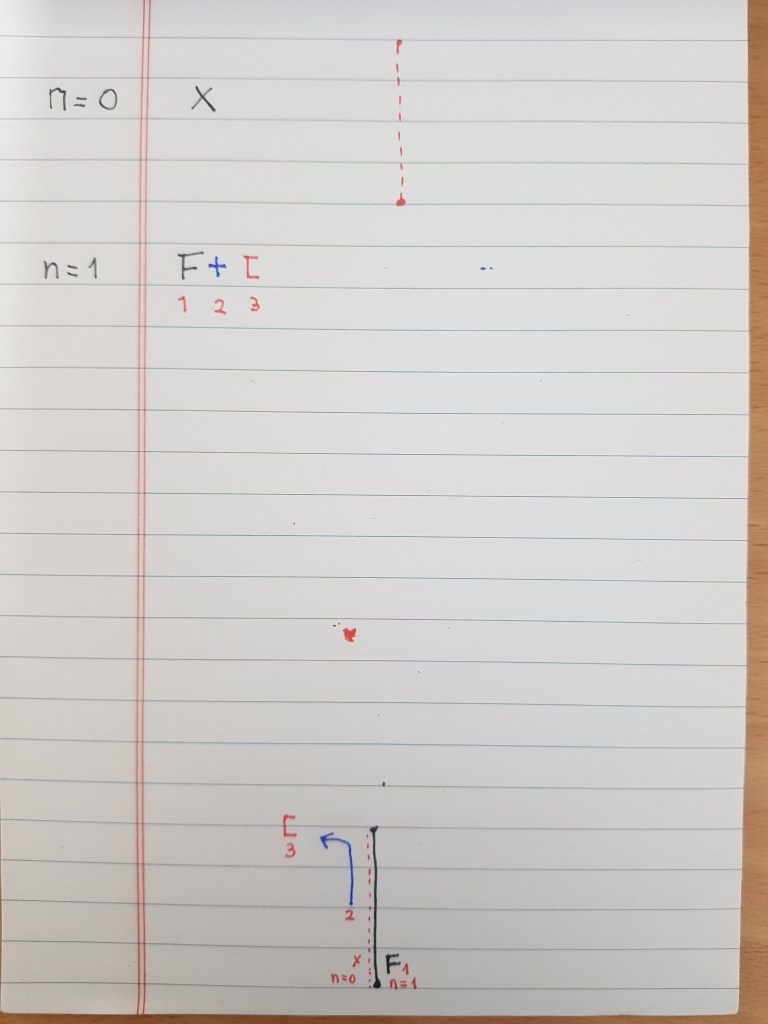 n=0 X
n=1 F+[
1 2 3
[
3
2
X F1
n=0 n=1